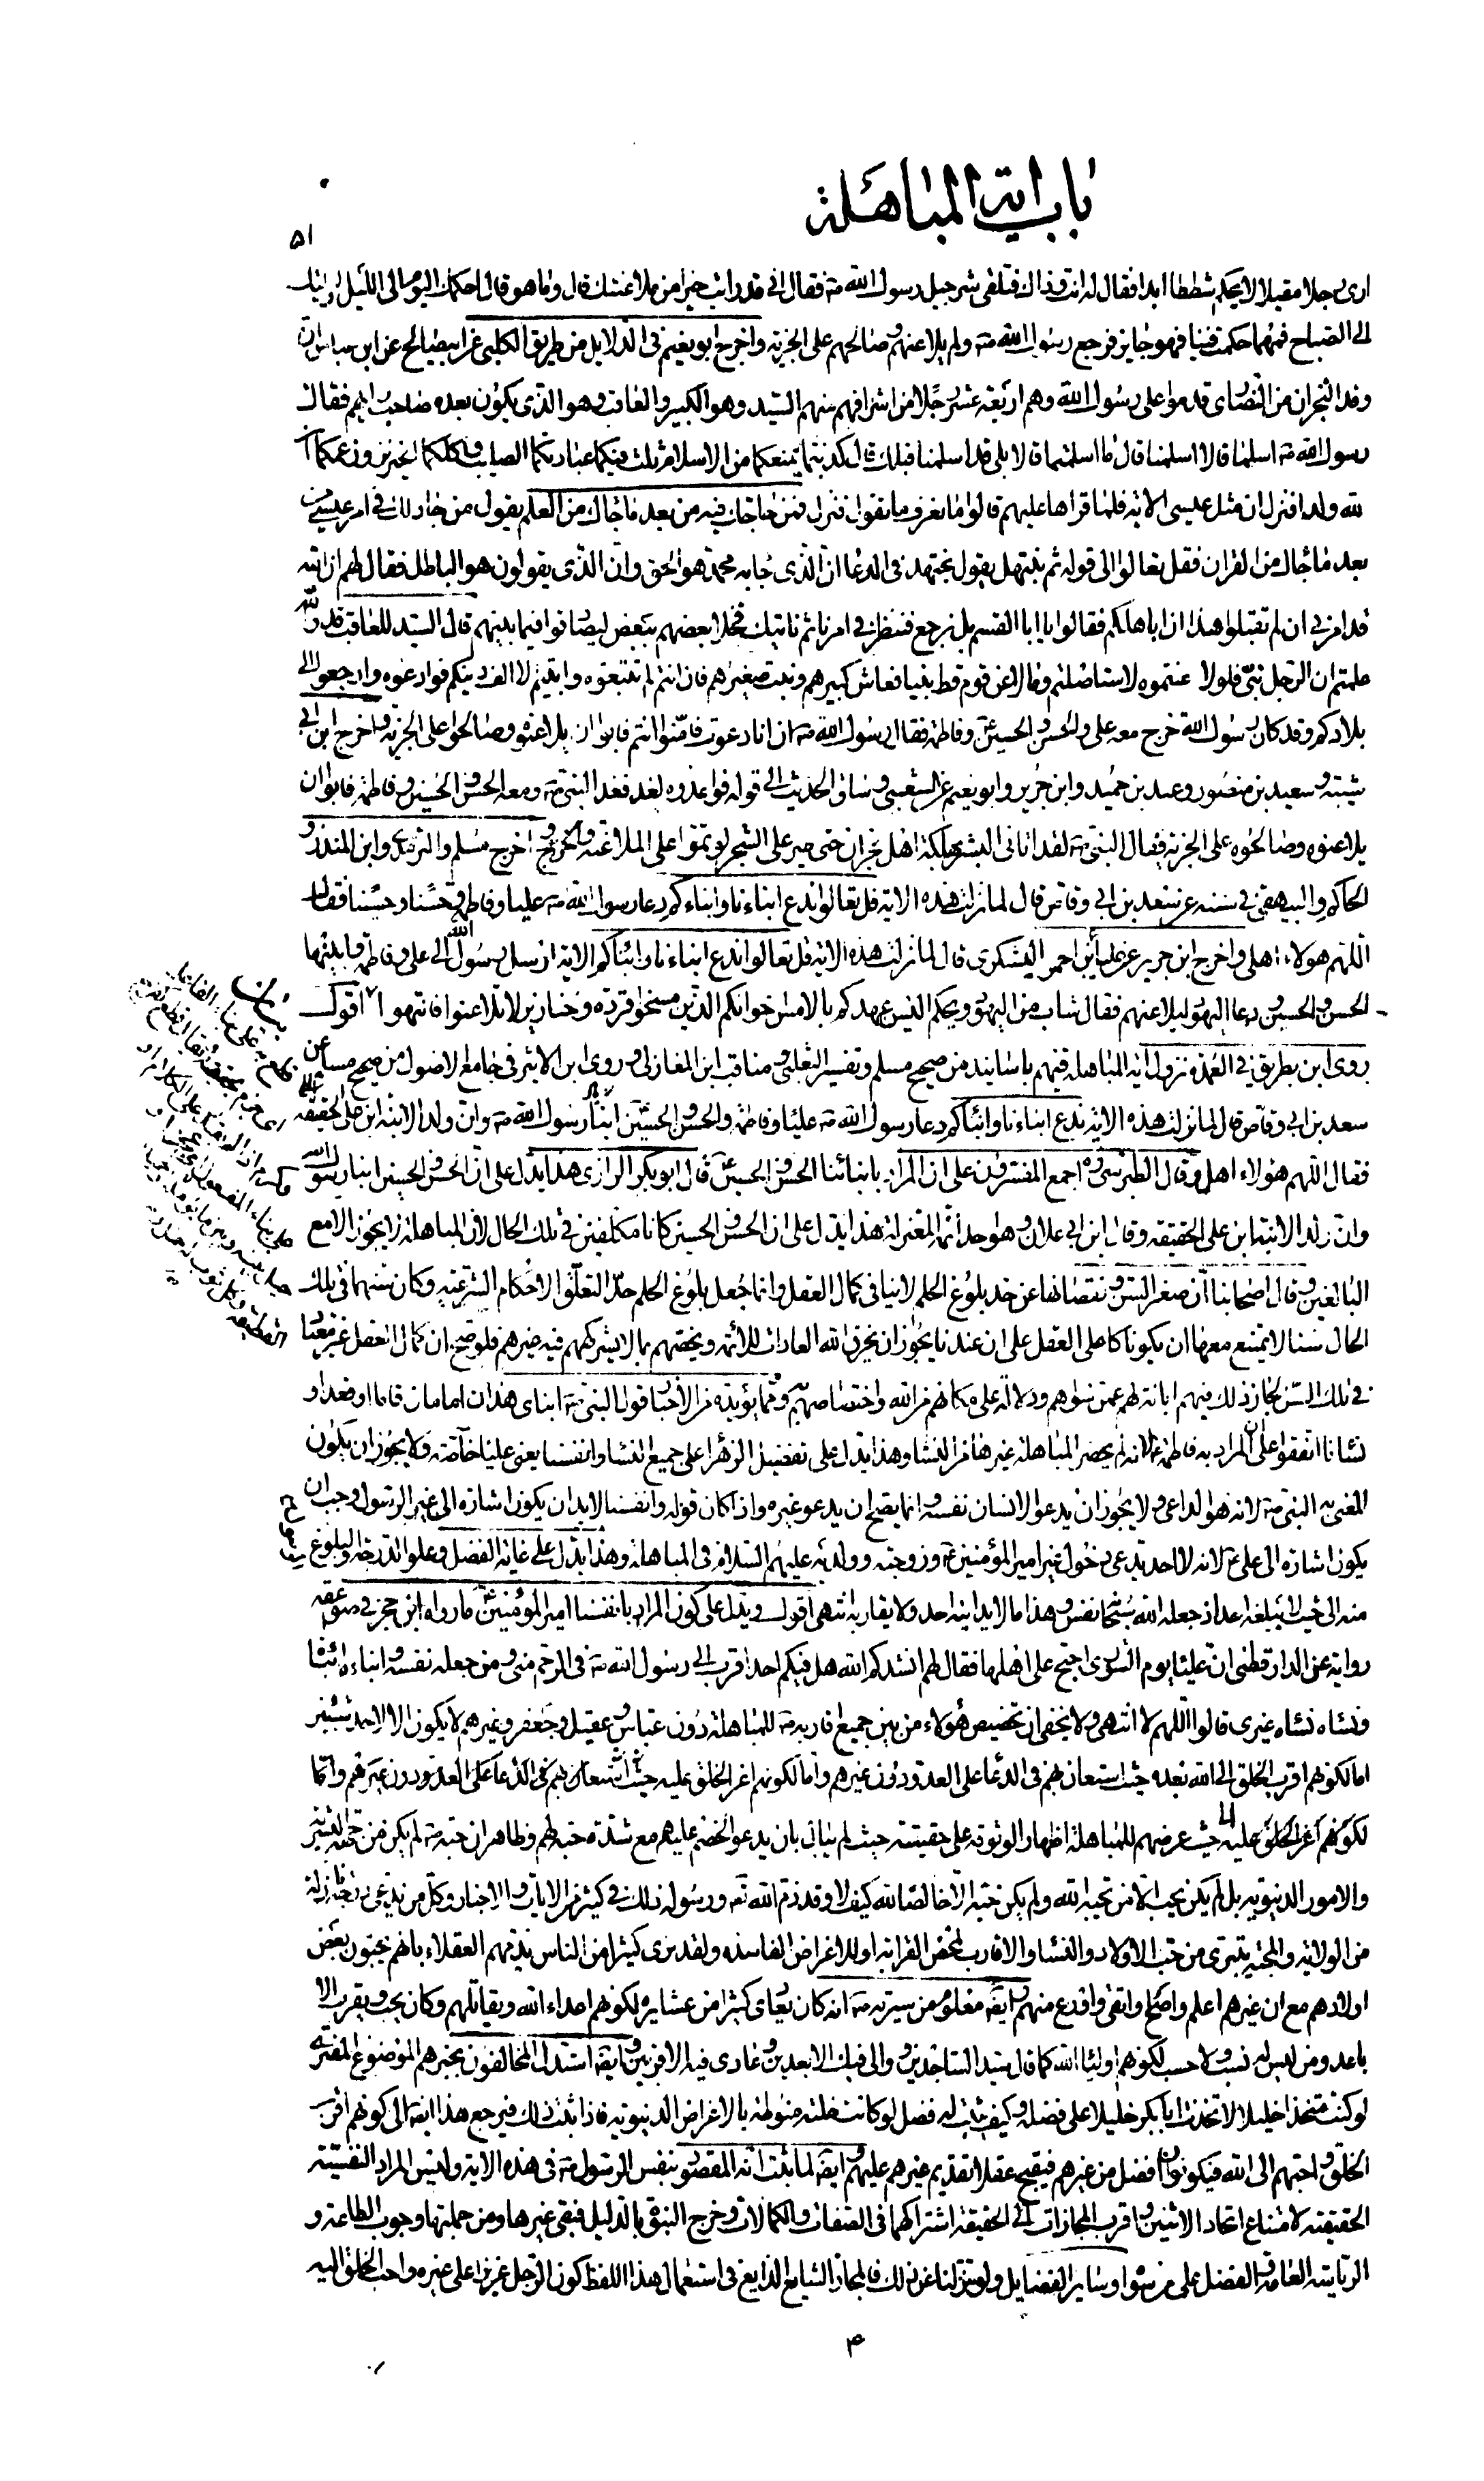 باب اية المباهلة
٥١
ارى رجلا مقبلا لا يحكم شططا ابدا فقال له انت وذاك فتلقى شرحبيل رسول الله ص فقال انى قد رايت خيرا من ملاعنتك قال وما هو قال احكمك اليوم الى الليل وليلتك
الى الصباح فمهما حكمت فينا فهو جايز فرجع رسول الله ص ولم يلاعنهم وصالحهم على الجزية واخرج ابو نعيم فى الدلايل من طريق الكلبى عن ابيصالح عن ابن عباس ان
وفد النجران من النصارى قدموا على رسول الله وهم اربعة عشر رجلا من اشرافهم منهم السيد وهو الكبير والعاقب وهو الذى يكون بعده صاحب رايهم فقال
رسول الله ص اسلما قالا اسلمنا قال ما اسلمتما قالا بلى قد اسلمنا قبلك قال كذبتما يمنعكما من الاسلام ثلث فيكما عبادتكما الصليب واكلكما الخنزير وزعمكما ان
لله ولدا فنزل ان مثل عيسى الاية فلما قراها عليهم قالوا ما نعرف ما تقول فنزل فمن حاجك فيه من بعد ما جاءك من العلم يقول من جادلك فى امر عيسى من
بعد ما جاءك من القران فقل تعالوا الى قوله ثم نبتهل يقول نجتهد فى الدعا ان الذى جاء به محمد هو الحق وان الذى يقولون هو الباطل فقال لهم ان الله
قد امرنى ان لم تقبلوا هذا ان اباهلكم فقالوا يا ابا القسم بل نرجع فننظر فى امرنا ثم ناتيك فخلا بعضهم ببعض ليصادقوا فيما بينهم قال السيد للعاقب قد والله
علمتم ان الرجل نبى فلو لاعنتموه لاستاصلتم وما لاعن قوم قط نبيا فعاش كبيرهم ونبت صغيرهم فان انتم لم تتبعوه وابيتم الا الف دينكم فوادعوه وارجعوا الى
بلادكم وقد كان رسول الله خرج معه على والحسن والحسين ع وفاطمة فقال رسول الله ص ان انا دعوت فامنوا انتم فابوا ان يلاعنوه وصالحوا على الجزية واخرج ابن ابى
شيبة وسعيد بن منصور وعبد بن حميد وابن جرير وابو نعيم عن الشعبى وساق الحديث الى قوله فواعدوه لغد فغدا النبى ص ومعه الحسن والحسين وفاطمة فابوا ان
يلاعنوه وصالحوه على الجزية فقال النبى ص لقد اتانى البشير بهلكة اهل نجران حتى الطير على الشجر لو تموا على الملاعنة واخرج مسلم والترمذى وابن المنذر و
الحاكم والبيهقى فى سننه عن سعد بن ابى وقاص قال لما نزلت هذه الاية قل تعالوا ندع ابناءنا وابناءكم دعا رسول الله ص عليا وفاطمة وحسنا وحسينا فقال
اللهم هولاء اهلى واخرج ابن جرير عن علباء بن احمر اليشكرى قال لما نزلت هذه الاية قل تعالوا ندع ابناءنا وابناءكم الاية ارسل رسول الله الى على وفاطمة وابنيهما
الحسن والحسين ودعا اليهود ليلاعنهم فقال شاب من اليهود ويحكم اليس عهدكم بالامس اخوانكم الذين مسخوا قردة وخنازير لا تلاعنوا فانتهوا اقول
روى ابن بطريق فى العمدة نزول اية المباهلة فيهم باسانيد من صحيح مسلم وتفسير الثعلبى ومناقب ابن المغازلى وروى ابن الاثير فى جامع الاصول من صحيح مسلم عن
سعد بن ابى وقاص قال لما نزلت هذه الاية ندع ابناءنا وابناءكم دعا رسول الله ص عليا وفاطمة والحسن والحسين ابنا رسول الله ص وان ولد الابنة ابن على الحقيقة
فقال اللهم هؤلاء اهلى وقال الطبرسى ره اجمع المفسرون على ان المراد بابنائنا الحسن والحسين ع قال ابو بكر الرازى هذا يدل على ان الحسن والحسين ابنا رسول الله
وان ولد الابنة ابن على الحقيقة وقال ابن ابى علان وهو احد ائمة المعتزلة هذا يدل على ان الحسن والحسين كانا مكلفين فى تلك الحال لان المباهلة لا يجوز الا مع
البالغين وقال اصحابنا ان صغر السن ونقصانها عن حد بلوغ الحلم لا ينافى كمال العقل وانما جعل بلوغ الحلم حدا لتعلق الاحكام الشرعية وكان سنهما فى تلك
الحال سنا لا يمتنع معها ان يكونا كاملى العقل على ان عندنا يجوز ان يخرق الله العادات للائمة ويخصهم بما لا يشركهم فيه غيرهم فلو صح ان كمال العقل غير معتاد
فى تلك السن لجاز ذلك فيهم ابانة لهم عمن سواهم ودلالة على مكانهم من الله واختصاصهم به ومما يؤيده من الاخبار قول النبى ص ابناى هذان امامان قاما او قعدا و
نسائنا اتفقوا على ان المراد به فاطمة ع لانه لم يحضر المباهلة غيرها من النساء وهذا يدل على تفضيل الزهرا على جميع النساء وانفسنا يعنى عليا خاصة ولا يجوز ان يكون
المعنى به النبى ص لانه هو الداعى ولا يجوز ان يدعو الانسان نفسه وانما يصح ان يدعو غيره واذا كان قوله وانفسنا لابد ان يكون اشارة الى غير الرسول وجب ان
يكون اشارة الى على ع لانه لا احد يدعى دخول غير امير المؤمنين ع وزوجته وولديه عليهم السلام فى المباهلة وهذا يدل على غاية الفضل وعلو الدرجة والبلوغ
منه الى حيث لا يبلغه احد اذ جعله الله سبحانه نفسه وهذا ما لا يدانيه احد ولا يقاربه انتهى اقول ويدل على كون المراد بانفسنا امير المؤمنين ع ما رواه ابن حجر فى صواعقه
رواية عن الدارقطنى ان عليا يوم الشورى احتج على اهلها فقال لهم انشدكم الله هل فيكم احد اقرب الى رسول الله ص فى الرحم منى ومن جعله نفسه وابناءه ابناءه
ونساءه نساءه غيرى قالوا اللهم لا انتهى ولا يخفى ان تخصيص هؤلاء من بين جميع اقاربه ص للمباهلة دون عباس وعقيل وجعفر وغيرهم لا يكون الا لاحد شيئين
اما لكونهم اقرب الخلق الى الله بعده حيث استعان بهم فى الدعا على العدو دون غيرهم واما
لكونهم اعز الخلق عليه حيث عرضهم للمباهلة اظهارا لوثوقه على حقيته حيث لم يبال بان يدعو الخصم عليهم مع شدة حبه لهم وظاهر ان حبه ص لم يكن من جهة البشرية
والامور الدنيوية بل لم يكن يحب الا من يحبه الله ولم يكن حبه الا خالصا لله كيف لا وقد ذم الله تعه ورسوله ذلك فى كثير من الايات والاخبار وكل من يدعى درجة نازلة
من الولاية والمحبة يتبرى من حب الاولاد والنساء والاقارب لمحض القرابة او للاغراض الفاسدة ولقد نرى كثيرا من الناس يذمهم العقلاء بانهم يحبون بعض
اولادهم مع ان غيرهم اعلم واصلح واتقى واورع منهم وايضا معلوم من سيرته ص انه كان يعادى كثيرا من عشايره لكونهم اعداء الله ويقاتلهم وكان يحب ويقرب الا
باعد ومن ليس له نسب ولا حسب لكونهم اولياء الله كما قال سيد الساجدين ووالى فيك الابعدين وعادى فيك الاقربين وايضا استدل المخالفون بخبرهم الموضوع المفترى
لو كنت متخذا خليلا لاتخذت ابابكر خليلا على فضله وكيف يثبت له فضل لو كانت خلته منوطة بالاغراض الدنيوية فاذا ثبت ذلك فيرجع هذا ايضا الى كونهم اقرب
الخلق واحبهم الى الله فيكونون افضل من غيرهم فيقبح عقلا تقديم غيرهم عليهم وايضا لما ثبت انه المقصود بنفس الرسول ص فى هذه الاية وليس المراد النفسية
الحقيقية لامتناع اتحاد الاثنين واقرب المجازات الى الحقيقة اشتراكهما فى الصفات والكمالات وخرج النبوة بالدليل فبقى غيرها ومن جملتها وجوب الطاعة و
الرياسة العامة والفضل على من سواه وساير الفضايل ولو تنزلنا عن ذلك فالمجاز الشايع الذايع فى استعمال هذا اللفظ كون الرجل عزيزا على غيره واحب الخلق اليه